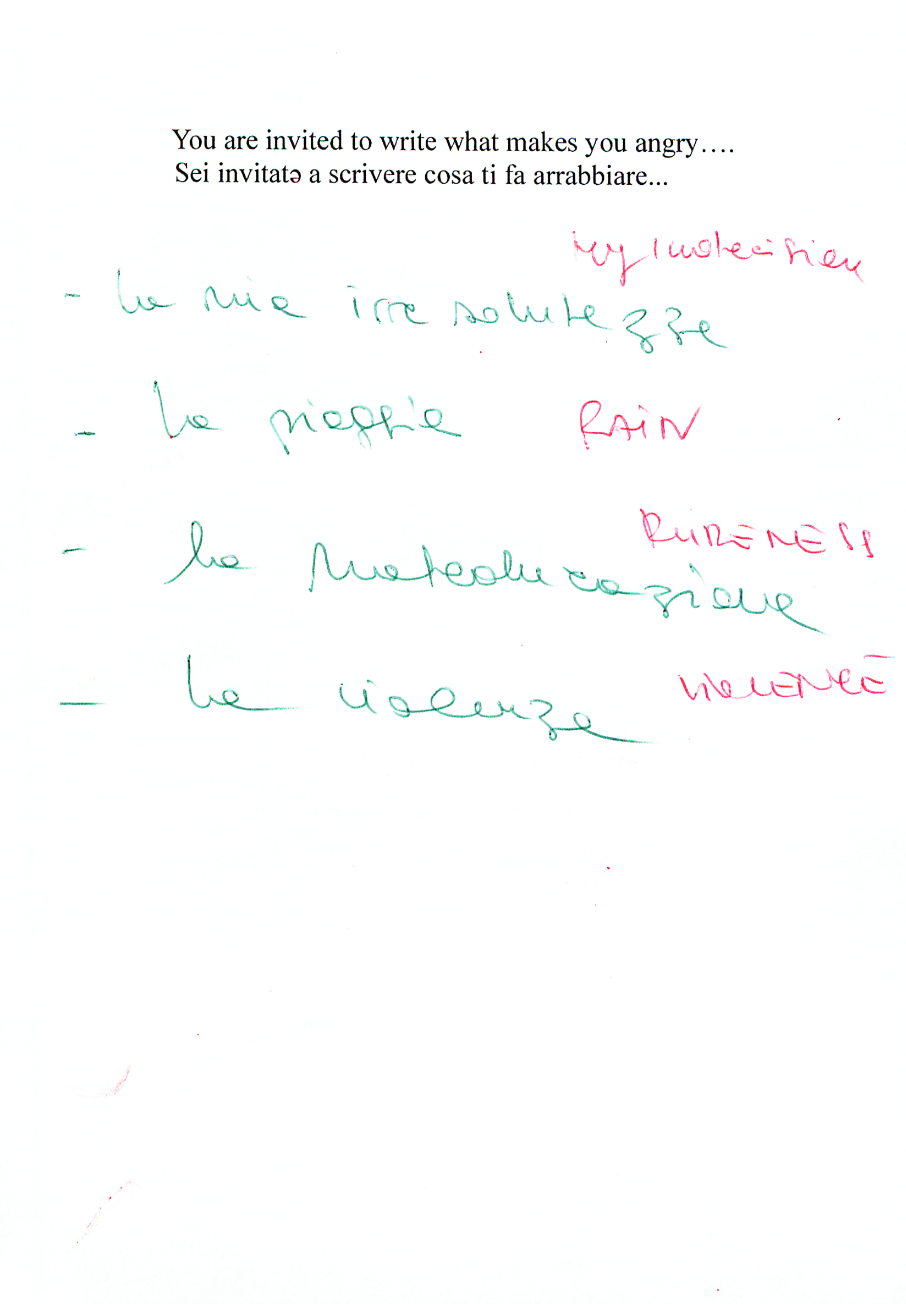 You are invited to write what makes you angry....
Sei invitatə a scrivere cosa ti fa arrabbiare...
my indecision
- la mia irresolutezza
- la pioggia RAIN
RUDENESS
- la maleducazione
- la violenza VIOLENCE